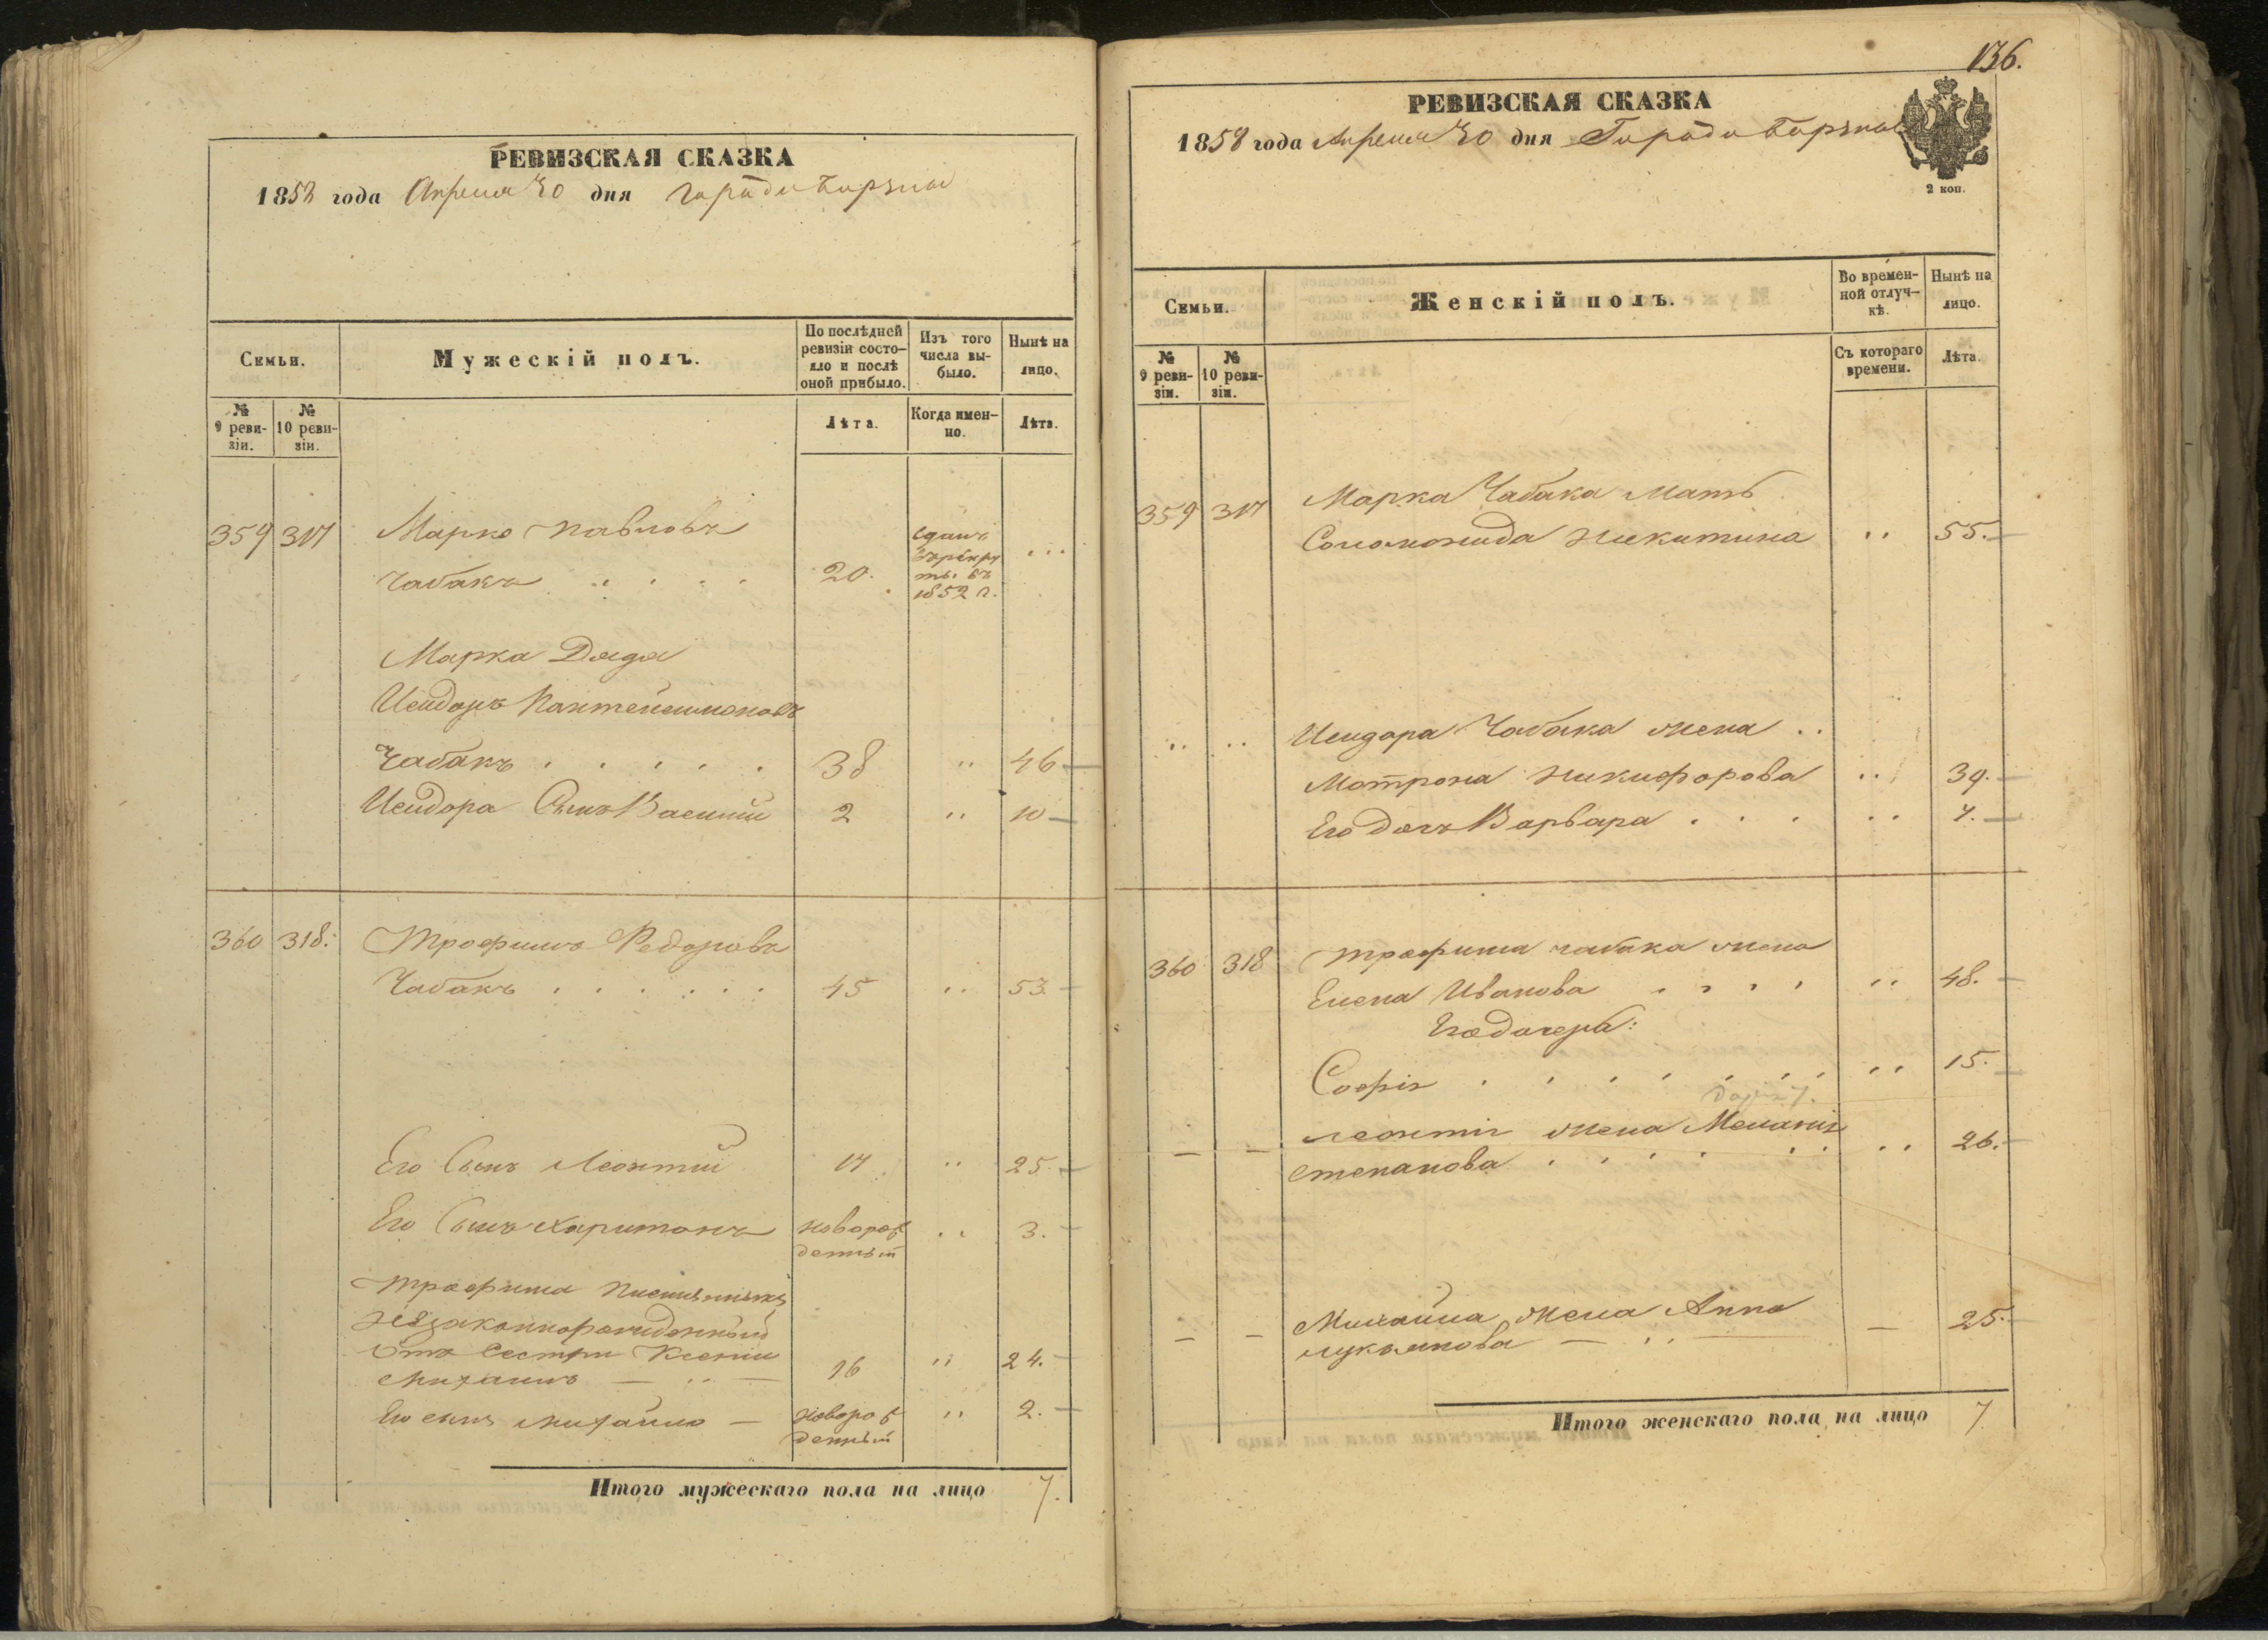 РЕВИЗСКАЯ СКАЗКА
1858 года Апреля 30 дня города Борзны
Семьи.
Мужескій полъ.
По послѣдней ревизіи состо-
яло и послѣ
оной прибыло.
Изъ того
числа вы-
было.
Нынѣ на
лицо.
№
9 реви-
зіи.
№
10 реви-
зіи.
Лѣта.
Когда имен-
но.
Лѣта.
359 317 Марко Павловъ
Чабакъ 20.
сданъ
въ рекру
ты въ
1852 г.
Марка Дядя
Исидоръ Пантелеимоновъ
Чабакъ . . . . . 38 " 46
Исидора Сынъ Василий 2 " 10
360 318. Трофимъ Федоровъ
Чабакъ . . . . . . 45 " 53.
Его Сынъ Леонтий 17 " 25.
Его Сынъ Харитонъ новорож " 3.
денный
Трофима
незаконнорожденный
отъ Сестры Ксении
Михаилъ — " — 16 " 24.
Его сынъ Михайло — новорож " 2.
денный
Итого мужескаго пола на лицо 7.
136.
РЕВИЗСКАЯ СКАЗКА
1858 года Апреля 30 дня Города Борзны
2 коп.
Семьи.
Женскій полъ.
Во времен-
ной отлуч-
кѣ.
Нынѣ на
лицо.
№
9 реви-
зіи.
№
10 реви-
зіи.
Съ котораго
времени.
Лѣта.
359 317 Марка Чабака Мать
Соломонида Никитина " 55.
" " Исидора Чабака жена "
Мотрона Никифорова " 39.
Его дочь Варвара . . . " 7.
360 318 Трофима Чабака жена
Елена Иванова . . . . " 48.
Его дочери:
Софія . . . . . . " 15.
Дарья 7.
— — Леонтія жена Меланія
Степанова . . . . . . " 26.
— — Михайла жена Анна
Лукьянова — " — — 25.
Итого женскаго пола на лицо 7